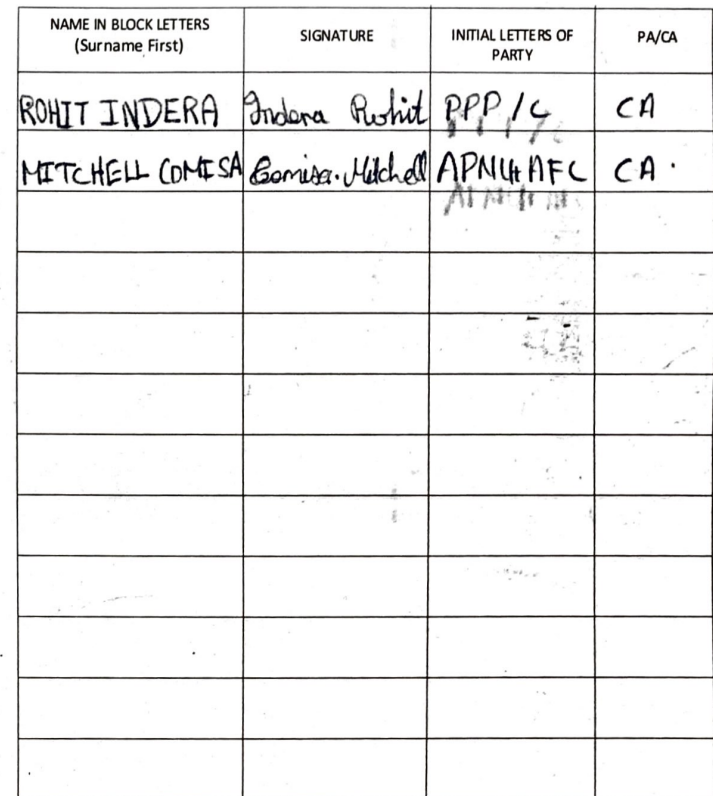 NAME IN BLOCK LETTERS (Surname First) SIGNATURE INITIAL LETTERS OF PARTY PA/CA
ROHIT INDERA Indera Rohit PPP/C CA
MITCHELL COMISA Comisa. Mitchell APNU+AFC CA.